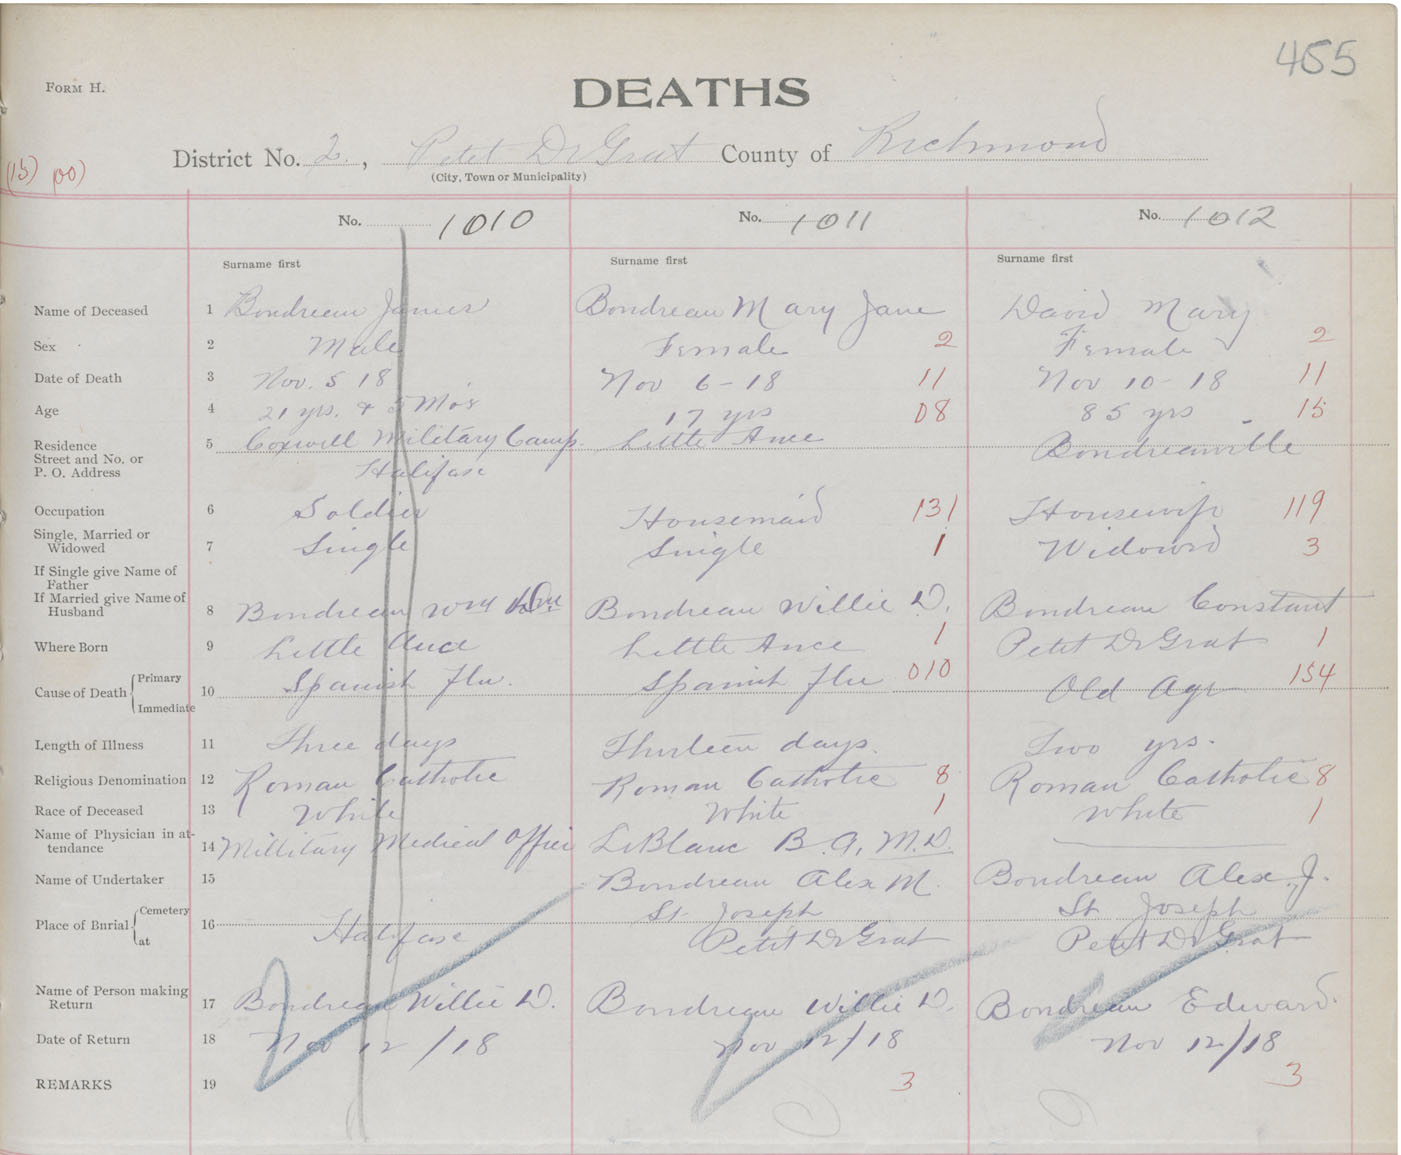 455
FORM H.
DEATHS
District No. 2, Petit De Grat County of Richmond
(City, Town or Municipality)
(15) 00)
No. 1010 No. 1011 No. 1012
Surname first Surname first Surname first
Name of Deceased 1 Boudreau James Boudreau Mary Jane David Mary
Sex 2 Male Female 2 Female 2
Date of Death 3 Nov. 5 18 Nov 6-18 11 Nov 10-18 11
Age 4 21 yrs. & 5 Mo's 17 yrs 08 85 yrs 15
Residence
Street and No. or
P. O. Address
5 Coxwell Military Camp. Little Ance Boudreauville
Halifax
Occupation 6 Soldier Housemaid 131 Housewife 119
Single, Married or
Widowed
7 Single Single 1 Widowed 3
If Single give Name of
Father
If Married give Name of
Husband
8 Boudreau Wm Boudreau Willie D. Boudreau Constant
Where Born 9 Little Ance Little Ance 1 Petit De Grat 1
Cause of Death { Primary
Immediate
10 Spanish Flu. Spanish Flu 010 Old Age 154
Length of Illness 11 Three days Thirteen days. Two yrs.
Religious Denomination 12 Roman Catholic Roman Catholic 8 Roman Catholic 8
Race of Deceased 13 White White 1 White 1
Name of Physician in at-
tendance
14 Millitary Medical Officer LeBlanc B. A, M.D.
Name of Undertaker 15 Boudreau Alex M. Boudreau Alex. J.
Place of Burial { Cemetery
at
16 St. Joseph St. Joseph
Halifax Petit De Grat Petit De Grat
Name of Person making
Return
17 Boudreau Willie D. Boudreau Willie D. Boudreau Edward.
Date of Return 18 Nov 12/18 Nov 12/18 Nov 12/18
REMARKS 19 3 3